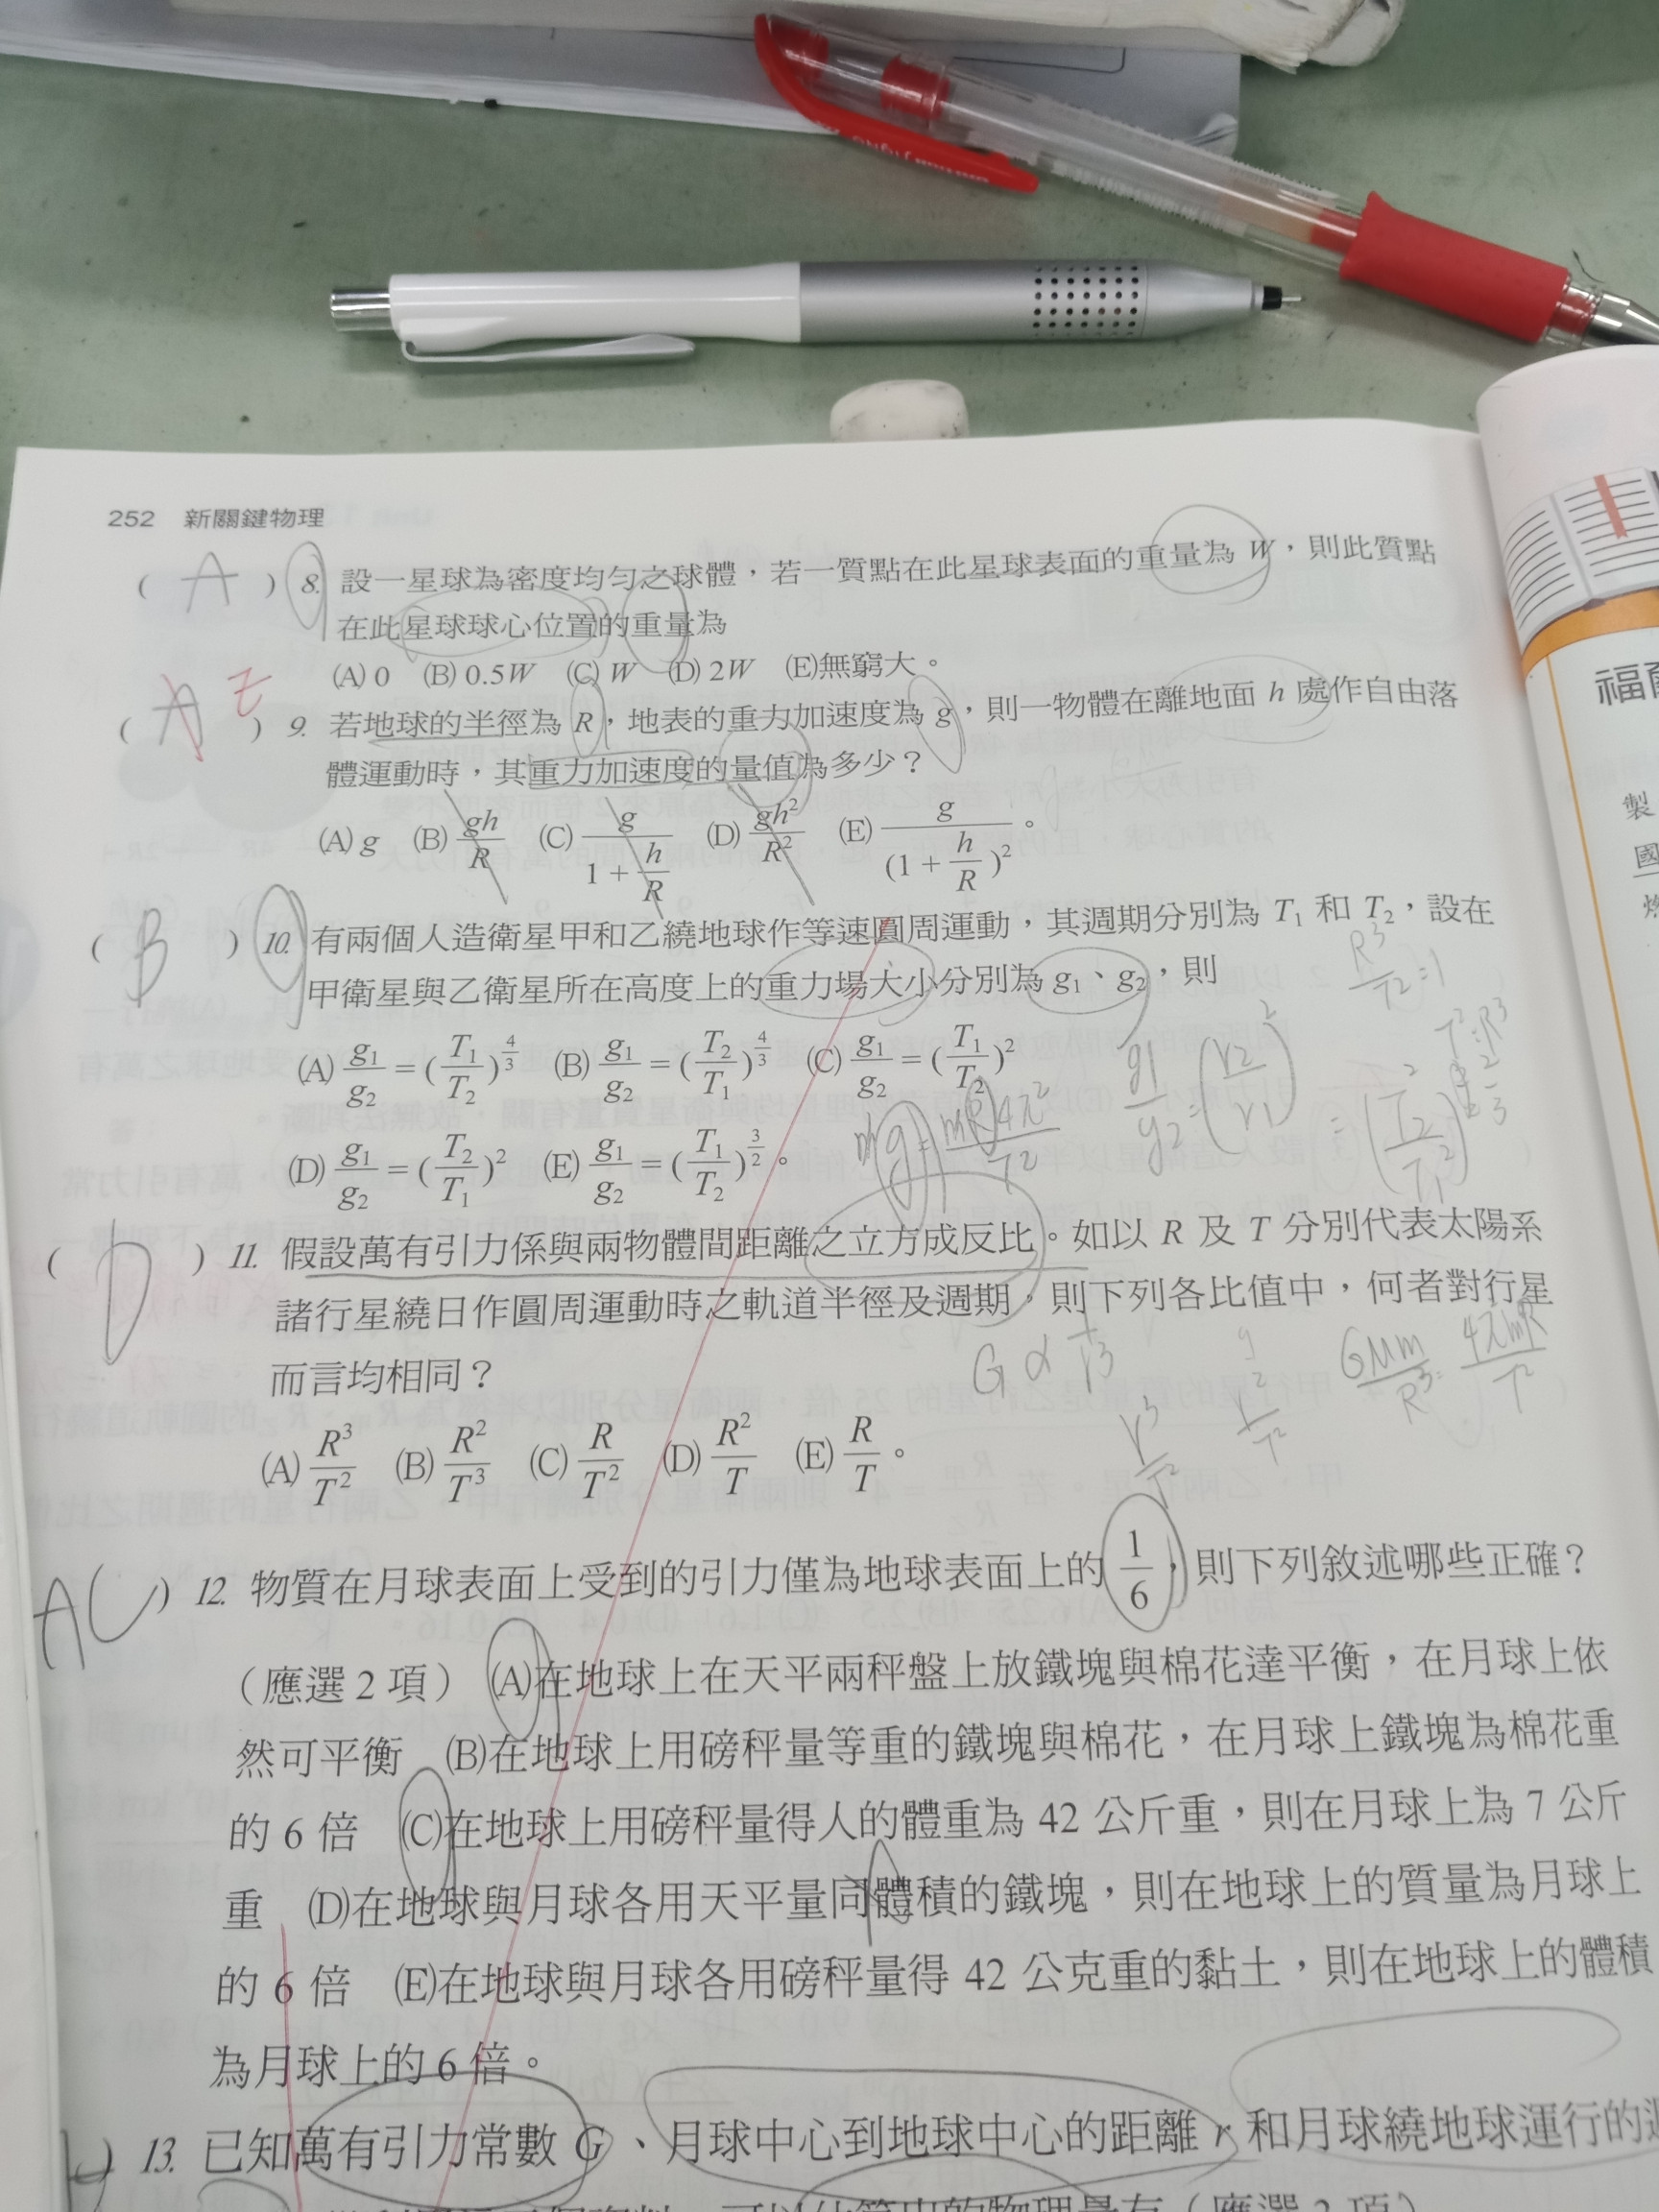 252 新關鍵物理
( A ) 8. 設一星球為密度均勻之球體，若一質點在此星球表面的重量為 W，則此質點
在此星球球心位置的重量為
(A) 0 (B) 0.5W (C) W (D) 2W (E)無窮大。
( A E ) 9. 若地球的半徑為 R，地表的重力加速度為 g，則一物體在離地面 h 處作自由落
體運動時，其重力加速度的量值為多少？
(A) g (B) gh/R (C) g/(1 + h/R) (D) gh²/R² (E) g/(1 + h/R)²。
( B ) 10. 有兩個人造衛星甲和乙繞地球作等速圓周運動，其週期分別為 T₁ 和 T₂，設在
甲衛星與乙衛星所在高度上的重力場大小分別為 g₁、g₂，則
R³/T² = 1
(A) g₁/g₂ = (T₁/T₂)^(4/3) (B) g₁/g₂ = (T₂/T₁)^(4/3) (C) g₁/g₂ = (T₁/T₂)²
(D) g₁/g₂ = (T₂/T₁)² (E) g₁/g₂ = (T₁/T₂)^(3/2)。
mg = mR4π²/T²
g₁/g₂ = (r₂/r₁)²
( D ) 11. 假設萬有引力係與兩物體間距離之立方成反比。如以 R 及 T 分別代表太陽系
諸行星繞日作圓周運動時之軌道半徑及週期，則下列各比值中，何者對行星
而言均相同？
G ∝ 1/r³
GMm/R³ = 4π²mR/T²
r³/T²
(A) R³/T² (B) R²/T³ (C) R/T² (D) R²/T (E) R/T。
AC ) 12. 物質在月球表面上受到的引力僅為地球表面上的 1/6，則下列敘述哪些正確？
（應選 2 項） (A)在地球上在天平兩秤盤上放鐵塊與棉花達平衡，在月球上依
然可平衡 (B)在地球上用磅秤量等重的鐵塊與棉花，在月球上鐵塊為棉花重
的 6 倍 (C)在地球上用磅秤量得人的體重為 42 公斤重，則在月球上為 7 公斤
重 (D)在地球與月球各用天平量同體積的鐵塊，則在地球上的質量為月球上
的 6 倍 (E)在地球與月球各用磅秤量得 42 公克重的黏土，則在地球上的體積
為月球上的 6 倍。
) 13. 已知萬有引力常數 G、月球中心到地球中心的距離 r 和月球繞地球運行的
福
製
國